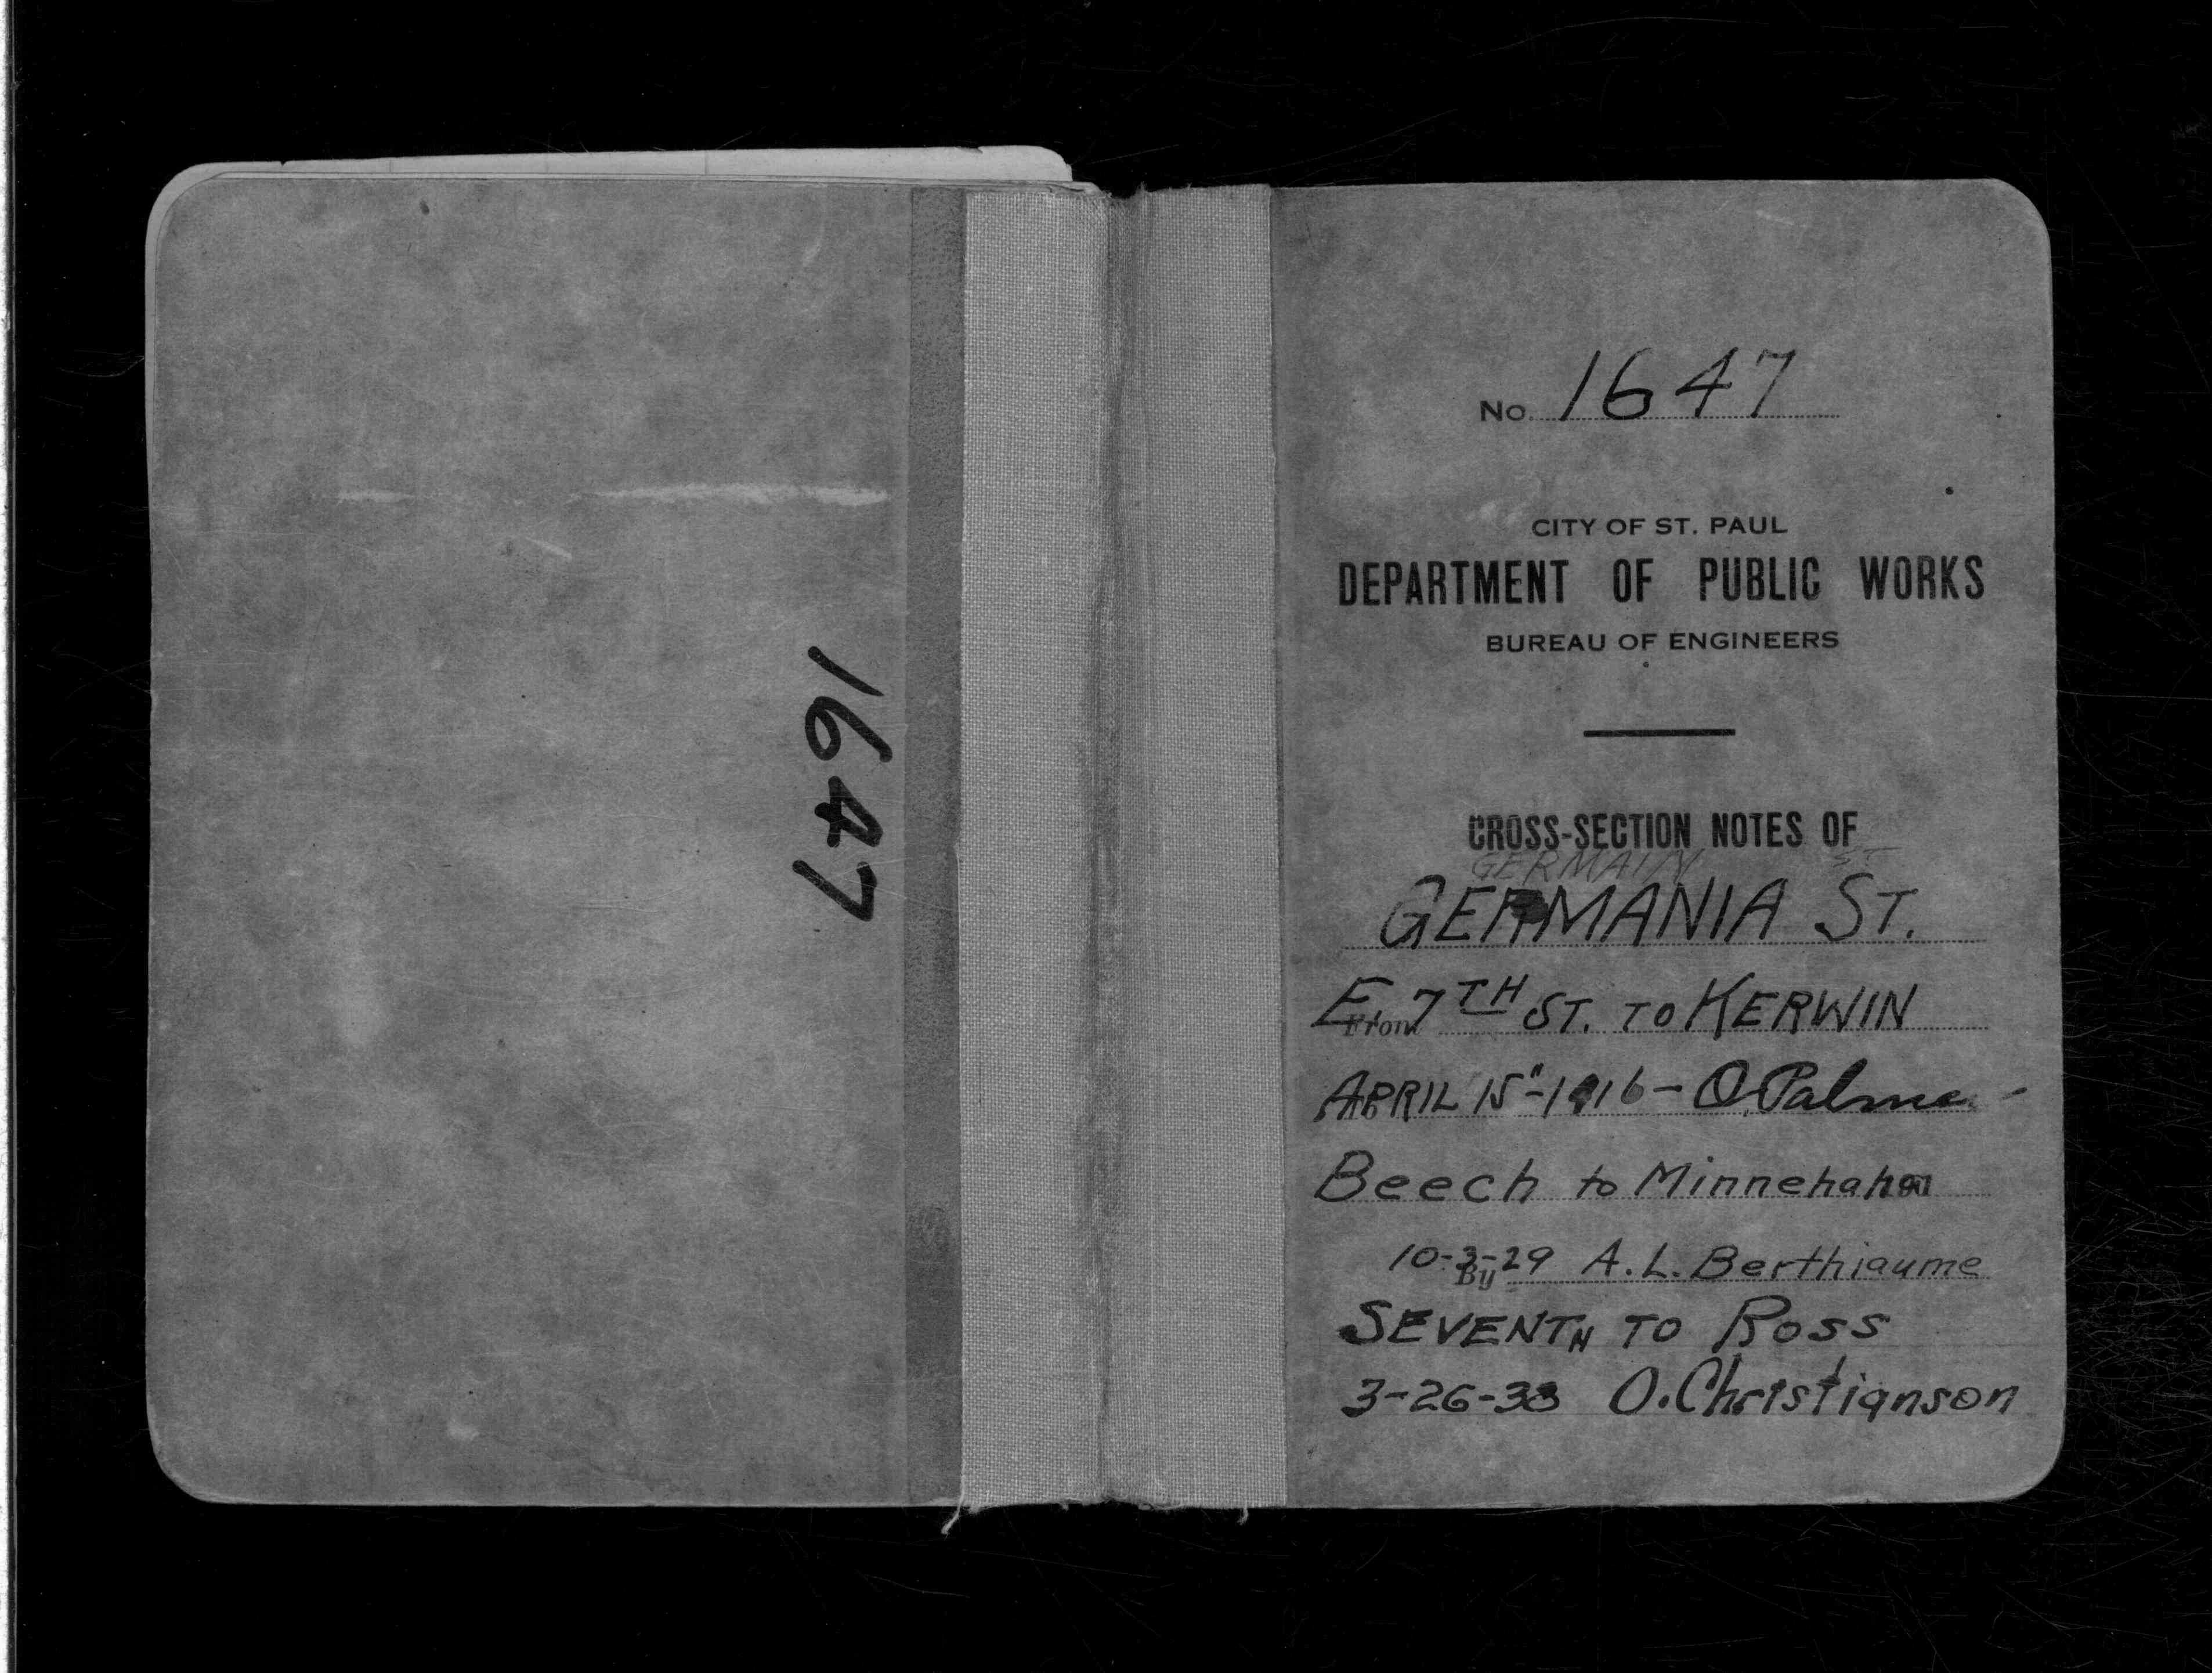 1647
No. 1647
CITY OF ST. PAUL
DEPARTMENT OF PUBLIC WORKS
BUREAU OF ENGINEERS
CROSS-SECTION NOTES OF
GERMAIN ST.
GERMANIA ST.
From E. 7TH ST. TO KERWIN
APRIL 15"-1916- O. Palme
Beech to Minnehaha
10-3-29 By A.L. Berthiaume
SEVENTH TO ROSS
3-26-38 O. Christianson